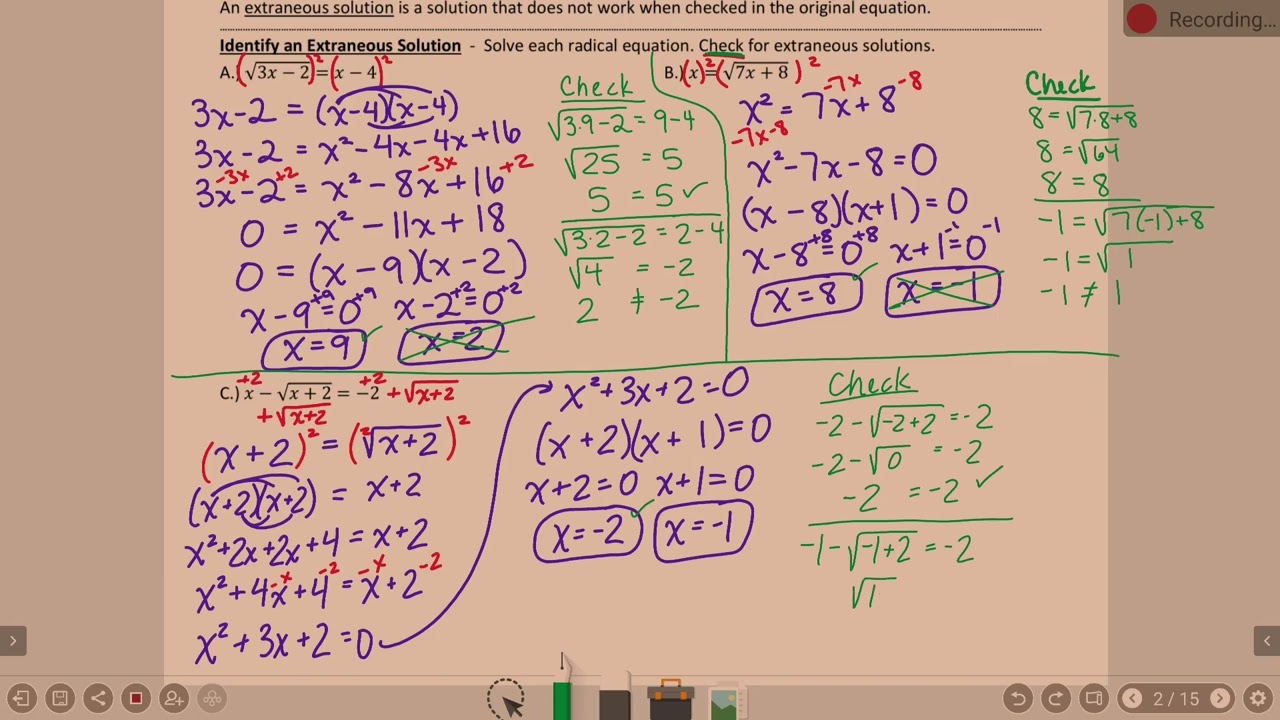 An extraneous solution is a solution that does not work when checked in the original equation.
Identify an Extraneous Solution - Solve each radical equation. Check for extraneous solutions.
A.) (√3x − 2)² = (x − 4)²
3x-2 = (x-4)(x-4)
3x-2 = x²-4x-4x+16
-3x +2 -3x +2
3x-2 = x²-8x+16
0 = x²-11x+18
0 = (x-9)(x-2)
x-9=0 x-2=0
+9 +9 +2 +2
x=9 ✓ x=2
Check
√3·9-2 = 9-4
√25 = 5
5 = 5 ✓
√3·2-2 = 2-4
√4 = -2
2 ≠ -2
B.) (x)² = (√7x + 8)²
-7x -8
x² = 7x+8
-7x-8
x²-7x-8=0
(x-8)(x+1)=0
x-8=0 x+1=0
+8 +8 -1 -1
x=8 ✓ x=-1
Check
8=√7·8+8
8=√64
8=8
-1=√7(-1)+8
-1=√1
-1≠1
C.) x − √x + 2 = −2
+2 +2 +√x+2
+√x+2
(x+2)² = (²√x+2)²
(x+2)(x+2) = x+2
x²+2x+2x+4=x+2
-x -2 -x -2
x²+4x+4=x+2
x²+3x+2=0
x²+3x+2=0
(x+2)(x+1)=0
x+2=0 x+1=0
x=-2 ✓ x=-1
Check
-2-√-2+2=-2
-2-√0 =-2
-2 =-2 ✓
-1-√-1+2=-2
√1
Recording...
2 / 15